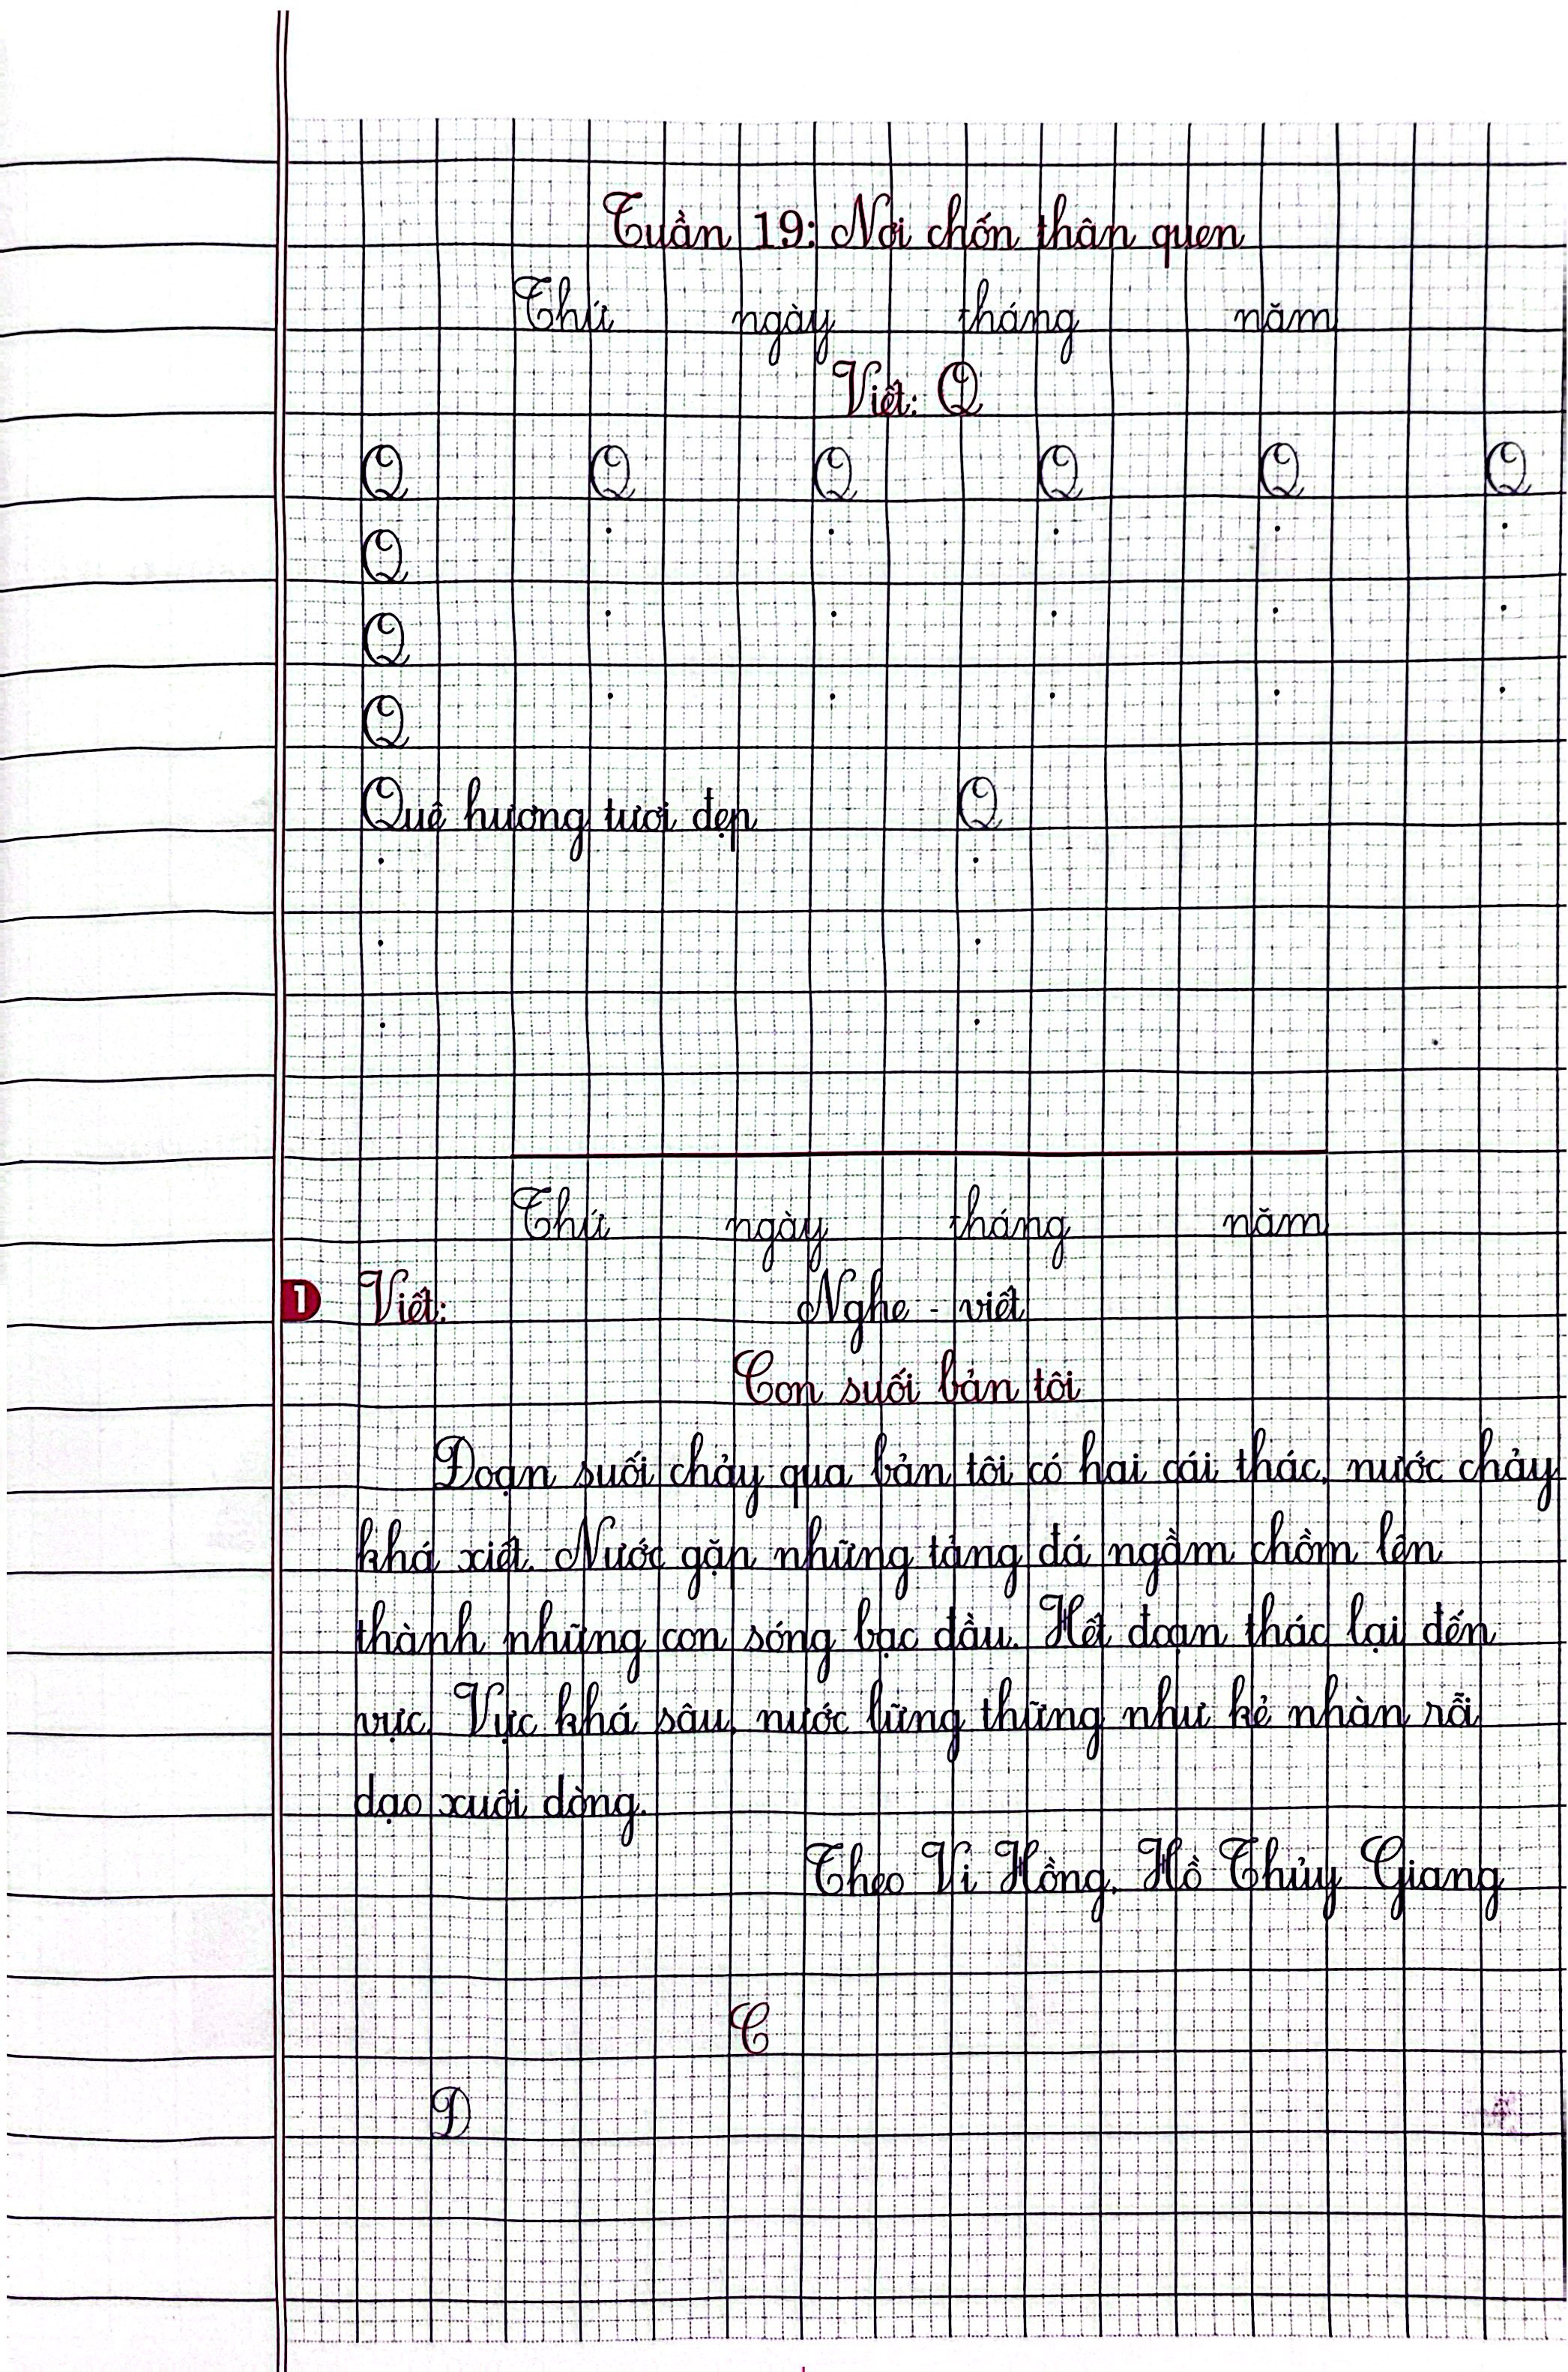 Tuần 19: Nơi chốn thân quen
Thứ ngày tháng năm
Viết: Q
Q Q Q Q Q Q
Q . . . . .
Q . . . . .
Q . . . . .
Quê hương tươi đẹp Q
. .
. .
. .
Thứ ngày tháng năm
1 Viết: Nghe - viết
Con suối bản tôi
Đoạn suối chảy qua bản tôi có hai cái thác, nước chảy
khá xiết. Nước gặp những tảng đá ngầm chồm lên
thành những con sóng bạc đầu. Hết đoạn thác lại đến
vực. Vực khá sâu, nước lững thững như kẻ nhàn rỗi
dạo xuôi dòng.
Theo Vi Hồng, Hồ Thủy Giang
C
Đ